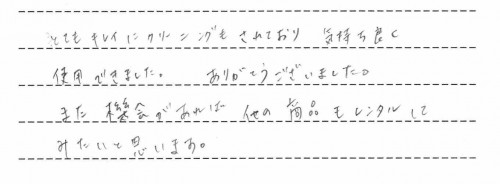 とてもキレイにクリーニングもされており 気持ち良く
使用できました。 ありがとうございました。
また機会があれば 他の商品もレンタルして
みたいと思います。